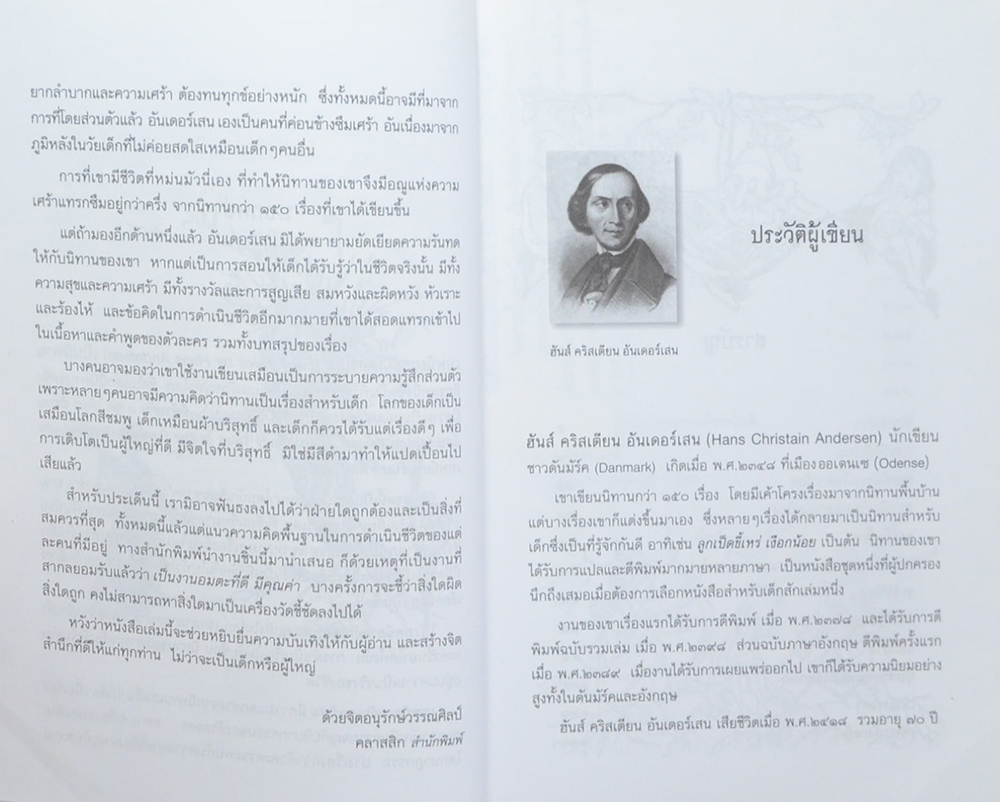 ยากลำบากและความเศร้า ต้องทนทุกข์อย่างหนัก ซึ่งทั้งหมดนี้อาจมีที่มาจาก
การที่โดยส่วนตัวแล้ว อันเดอร์เสน เองเป็นคนที่ค่อนข้างซึมเศร้า อันเนื่องมาจาก
ภูมิหลังในวัยเด็กที่ไม่ค่อยสดใสเหมือนเด็กๆคนอื่น
การที่เขามีชีวิตที่หม่นมัวนี่เอง ที่ทำให้นิทานของเขาจึงมีอณูแห่งความ
เศร้าแทรกซึมอยู่กว่าครึ่ง จากนิทานกว่า ๑๕๐ เรื่องที่เขาได้เขียนขึ้น
แต่ถ้ามองอีกด้านหนึ่งแล้ว อันเดอร์เสน มิได้พยายามยัดเยียดความรันทด
ให้กับนิทานของเขา หากแต่เป็นการสอนให้เด็กได้รับรู้ว่าในชีวิตจริงนั้น มีทั้ง
ความสุขและความเศร้า มีทั้งรางวัลและการสูญเสีย สมหวังและผิดหวัง หัวเราะ
และร้องไห้ และข้อคิดในการดำเนินชีวิตอีกมากมายที่เขาได้สอดแทรกเข้าไป
ในเนื้อหาและคำพูดของตัวละคร รวมทั้งบทสรุปของเรื่อง
บางคนอาจมองว่าเขาใช้งานเขียนเสมือนเป็นการระบายความรู้สึกส่วนตัว
เพราะหลายๆคนอาจมีความคิดว่านิทานเป็นเรื่องสำหรับเด็ก โลกของเด็กเป็น
เสมือนโลกสีชมพู เด็กเหมือนผ้าบริสุทธิ์ และเด็กก็ควรได้รับแต่เรื่องดีๆ เพื่อ
การเติบโตเป็นผู้ใหญ่ที่ดี มีจิตใจที่บริสุทธิ์ มิใช่มีสีดำมาทำให้แปดเปื้อนไป
เสียแล้ว
สำหรับประเด็นนี้ เรามิอาจฟันธงลงไปได้ว่าฝ่ายใดถูกต้องและเป็นสิ่งที่
สมควรที่สุด ทั้งหมดนี้แล้วแต่แนวความคิดพื้นฐานในการดำเนินชีวิตของแต่
ละคนที่มีอยู่ ทางสำนักพิมพ์นำงานชิ้นนี้มานำเสนอ ก็ด้วยเหตุที่เป็นงานที่
สากลยอมรับแล้วว่า เป็นงานอมตะที่ดี มีคุณค่า บางครั้งการจะชี้ว่าสิ่งใดผิด
สิ่งใดถูก คงไม่สามารถหาสิ่งใดมาเป็นเครื่องวัดชี้ชัดลงไปได้
หวังว่าหนังสือเล่มนี้จะช่วยหยิบยื่นความบันเทิงให้กับผู้อ่าน และสร้างจิต
สำนึกที่ดีให้แก่ทุกท่าน ไม่ว่าจะเป็นเด็กหรือผู้ใหญ่
ด้วยจิตอนุรักษ์วรรณศิลป์
คลาสสิก สำนักพิมพ์
ประวัติผู้เขียน
ฮันส์ คริสเตียน อันเดอร์เสน
ฮันส์ คริสเตียน อันเดอร์เสน (Hans Christain Andersen) นักเขียน
ชาวดันมัร์ค (Danmark) เกิดเมื่อ พ.ศ.๒๓๔๘ ที่เมืองออเดนเซ (Odense)
เขาเขียนนิทานกว่า ๑๕๐ เรื่อง โดยมีเค้าโครงเรื่องมาจากนิทานพื้นบ้าน
แต่บางเรื่องเขาก็แต่งขึ้นมาเอง ซึ่งหลายๆเรื่องได้กลายมาเป็นนิทานสำหรับ
เด็กซึ่งเป็นที่รู้จักกันดี อาทิเช่น ลูกเป็ดขี้เหร่ เงือกน้อย เป็นต้น นิทานของเขา
ได้รับการแปลและตีพิมพ์มากมายหลายภาษา เป็นหนังสือชุดหนึ่งที่ผู้ปกครอง
นึกถึงเสมอเมื่อต้องการเลือกหนังสือสำหรับเด็กสักเล่มหนึ่ง
งานของเขาเรื่องแรกได้รับการตีพิมพ์ เมื่อ พ.ศ.๒๓๗๘ และได้รับการตี
พิมพ์ฉบับรวมเล่ม เมื่อ พ.ศ.๒๓๙๘ ส่วนฉบับภาษาอังกฤษ ตีพิมพ์ครั้งแรก
เมื่อ พ.ศ.๒๓๘๙ เมื่องานได้รับการเผยแพร่ออกไป เขาก็ได้รับความนิยมอย่าง
สูงทั้งในดันมัร์คและอังกฤษ
ฮันส์ คริสเตียน อันเดอร์เสน เสียชีวิตเมื่อ พ.ศ.๒๔๑๘ รวมอายุ ๗๐ ปี